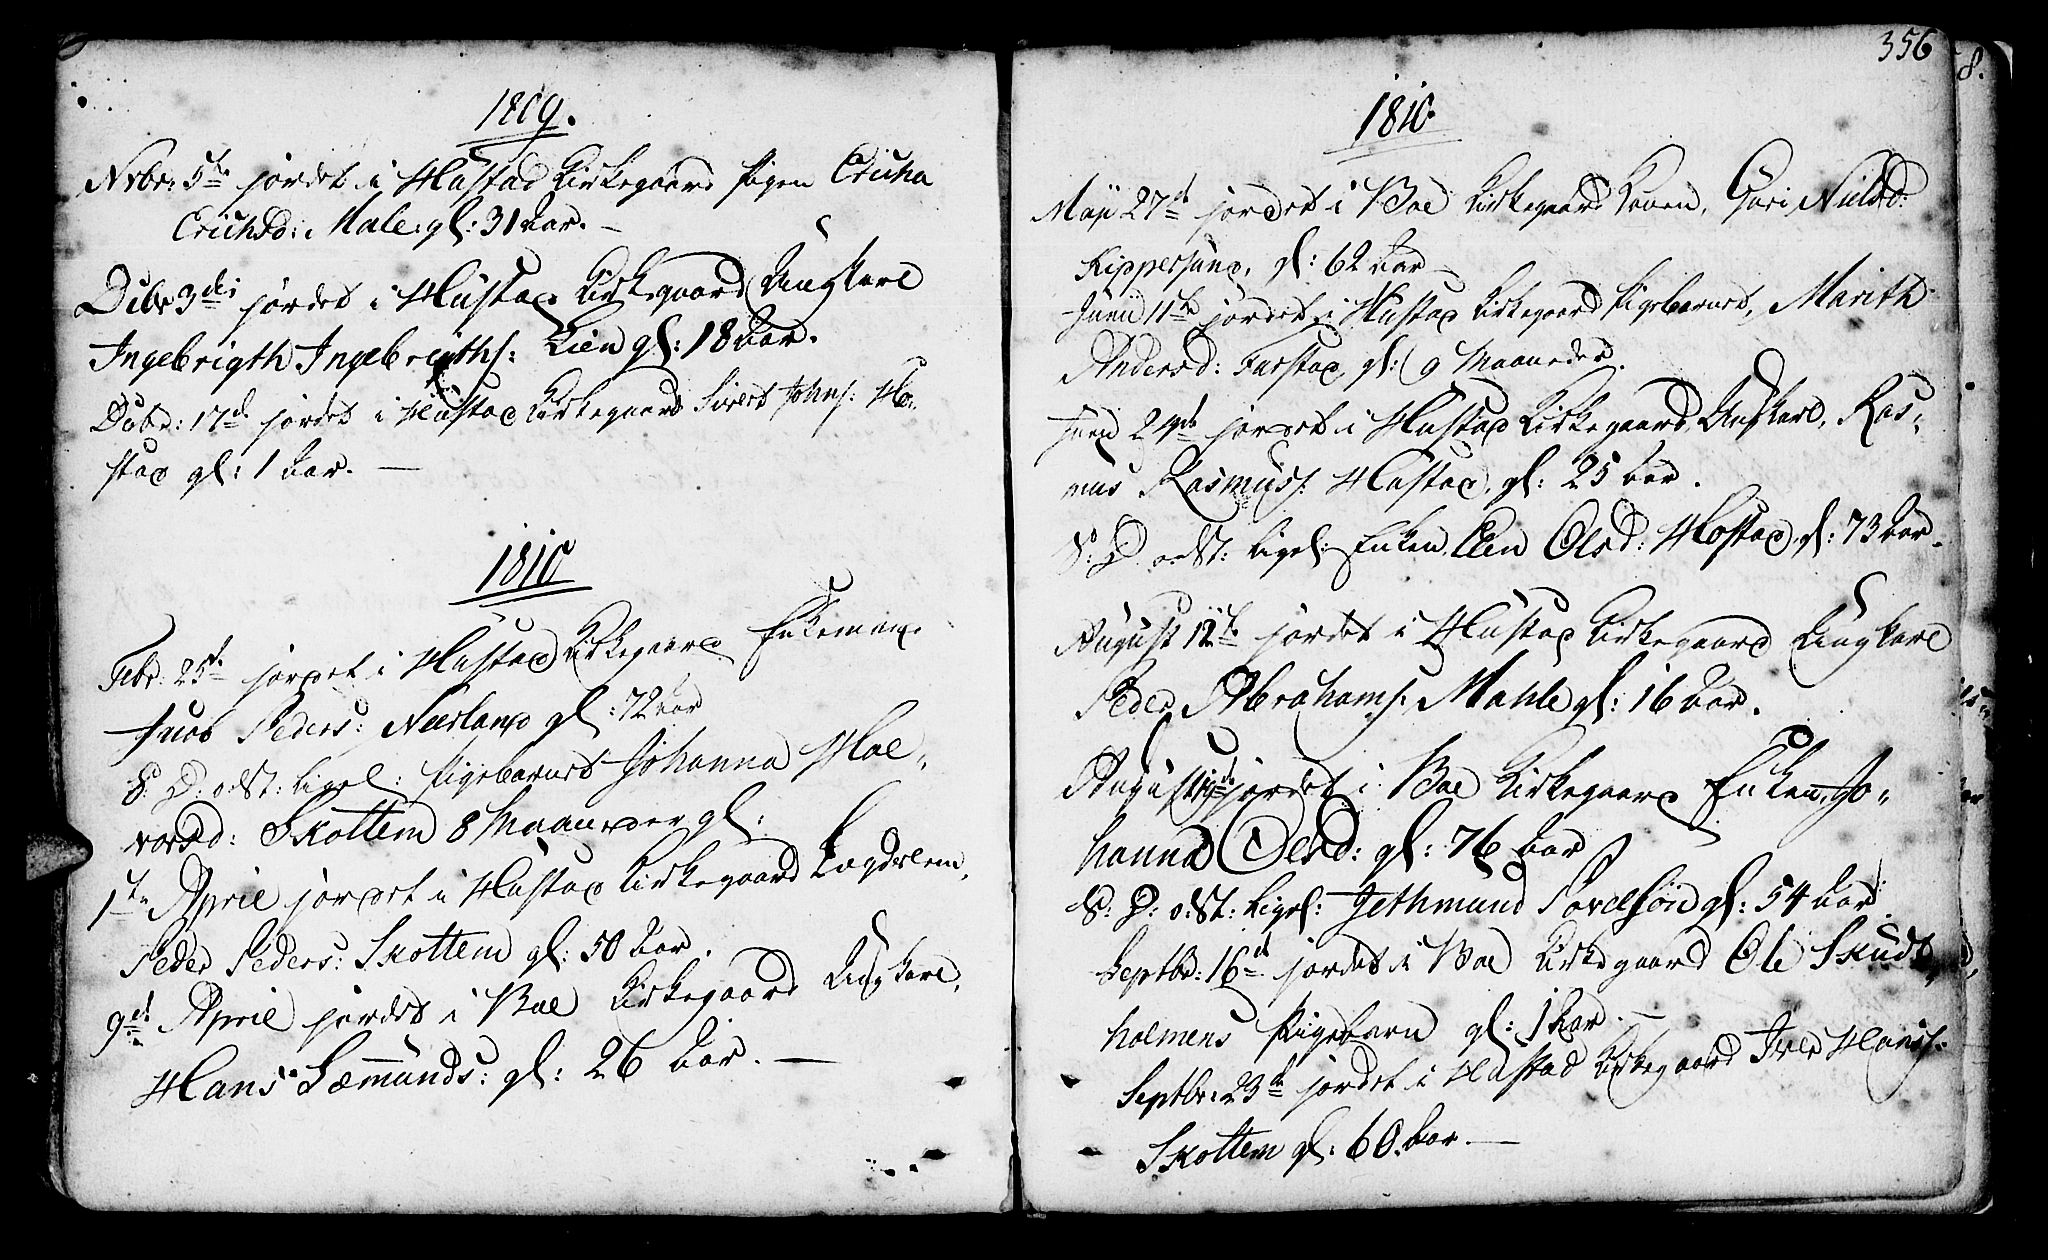 1809.
Nvbr: 5te jordet i Hustad Kirkegaard Pigen Ericha
Erichsd: Male. gl: 31 Aar. —
Dcbr 3die jordet i Hustad Kirkegaard Ungkarl
Ingebrigth Ingebrigths: Lien gl: 18 Aar.
Dcbr: 17de jordet i Hustad Kirkegaard Sivert Johns: Ho-
stad gl: 1 Aar. —
1810
Febr: 25de jordet i Hustad Kirkegaard Enkemand
Jacob Peders: Neerland gl: 72 Aar
S: D: o: St: Ligel: Pigebarnet Johanna Hal-
vorsd: Skottem 8 Maaneder gl:
1te April jordet i Hustad Kirkegaard Lægdslem,
Peder Peders: Skottem gl: 50 Aar.
9de April jordet i Boe Kirkegaard Ungkarl,
Hans Sæmunds: gl: 26 Aar. —
356
1810.
Maji 27de jordet i Boe Kirkegaard Konen, Guri Nielsd:
Kippersund, gl: 62 Aar —
Junii 11te jordet i Hustad Kirkegaard Pigebarnet, Marith
Andersd: Farstad, gl: 9 Maaneder.
Junii 24de jordet i Hustad Kirkegaard, Ungkarl, Ras-
mus Rasmuss: Hustad, gl: 25 Aar.
S: D: o: St: Ligel: Enken, Elen Olsd: Hostad, gl: 73 Aar.
August 12te jordet i Hustad Kirkegaard Ungkarl
Peder Abrahams: Mahle gl: 16 Aar.
August jordet i Boe Kirkegaard Enken, Jo-
hanna Olesd: gl: 76 Aar
S: D: o: St: Ligel: Jethmund Povelsøn gl: 54 Aar.
Septbr: 16de jordet i Boe Kirkegaard Ole Skuds-
holmens Pigebarn gl: 1 Aar. —
Septbr: 23de jordet i Hustad Kirkegaard Iver Hanss:
Skottem gl: 60. Aar. —